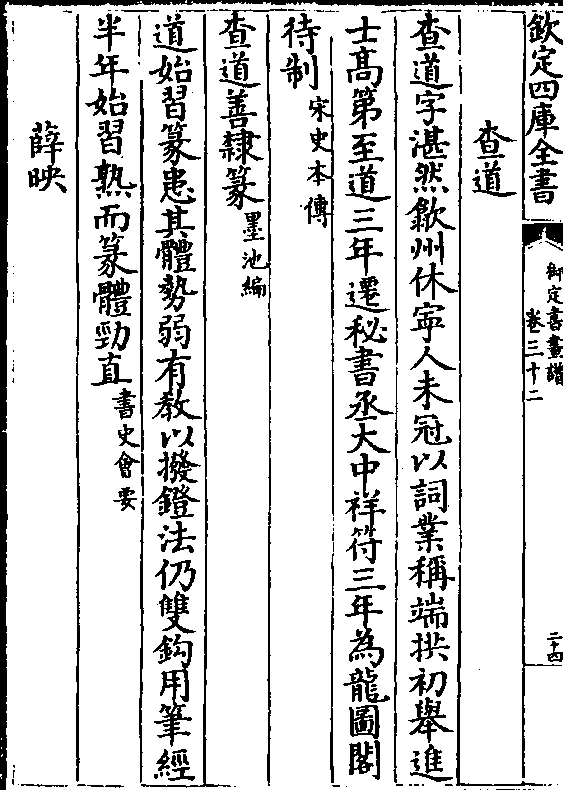 欽定四庫全書
御定書畫譜
卷三十二
二十四
查道
查道字湛然歙州休寧人未冠以詞業稱端拱初舉進
士髙第至道三年遷秘書丞大中祥符三年為龍圖閣
待制宋史本傳
查道善隸篆墨池編
道始習篆患其體勢弱有教以撥鐙法仍雙鈎用筆經
半年始習熟而篆體勁直書史會要
薛映